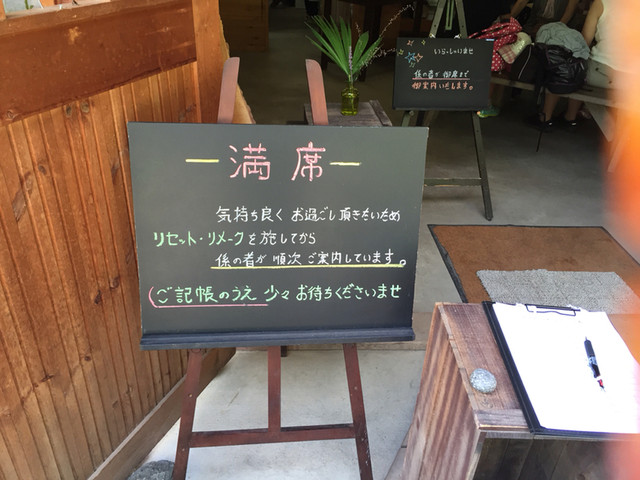 満席
気持ち良くお過ごし頂きたいため
リセット・リメークを施してから
係の者が順次ご案内しています。
ご記帳のうえ少々お待ちくださいませ
いらっしゃいませ
係の者が御席まで
御案内いたします。